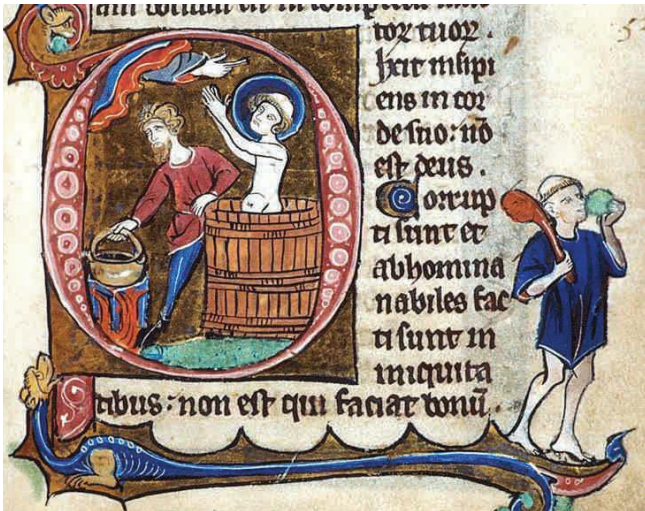 toꝝ tuoꝝ .
ixit insipi
ens in cor
de suo: nō
est deus .
Corrup
ti sunt et
abhomina
nabiles fac
ti sunt in
iniquita
tibus: non est qui faciat bonū .